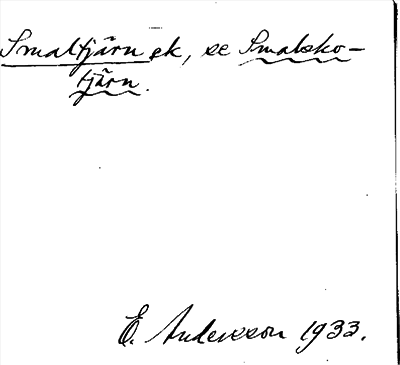 Smaltjärn sk, se Smalsko-
tjärn.
E. Andersson 1933.